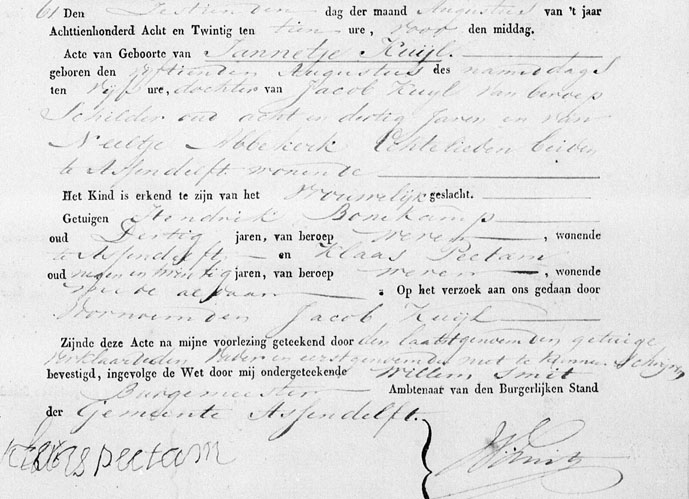 61 Den Zestienden dag der maand Augustus van 't jaar
Achttienhonderd Acht en Twintig ten tien ure, voor den middag.
Acte van Geboorte van Jannetje Kuijl
geboren den vyftienden Augustus des namiddags
ten Vyf ure, dochter van Jacob Kuyl van beroep
Schilder oud acht en dertig Jaren en van
Neeltje Abbekerk Echtelieden beiden
te Assendelft wonende
Het Kind is erkend te zijn van het Vrouwelijk geslacht.
Getuigen Hendrik Bonekamp
oud Dertig jaren, van beroep wever, wonende
te Assendelft en Klaas Peetam
oud negen en twintig jaren, van beroep wever, wonende
mede aldaar. Op het verzoek aan ons gedaan door
Voornoemden Jacob Kuijl
Zijnde deze Acte na mijne voorlezing geteekend door den laatstgenoemden getuige
verklaarende den Vader en eerstgenoemde niet te kunnen Schrijven
bevestigd, ingevolge de Wet door mij ondergeteekende Willem Smit
Burgemeester Ambtenaar van den Burgerlijken Stand
der Gemeente Assendelft.
Klaas peetam
WSmit